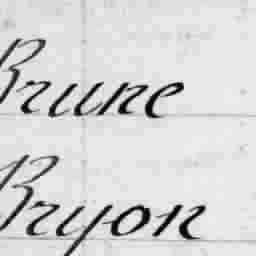 Brune
Bryon